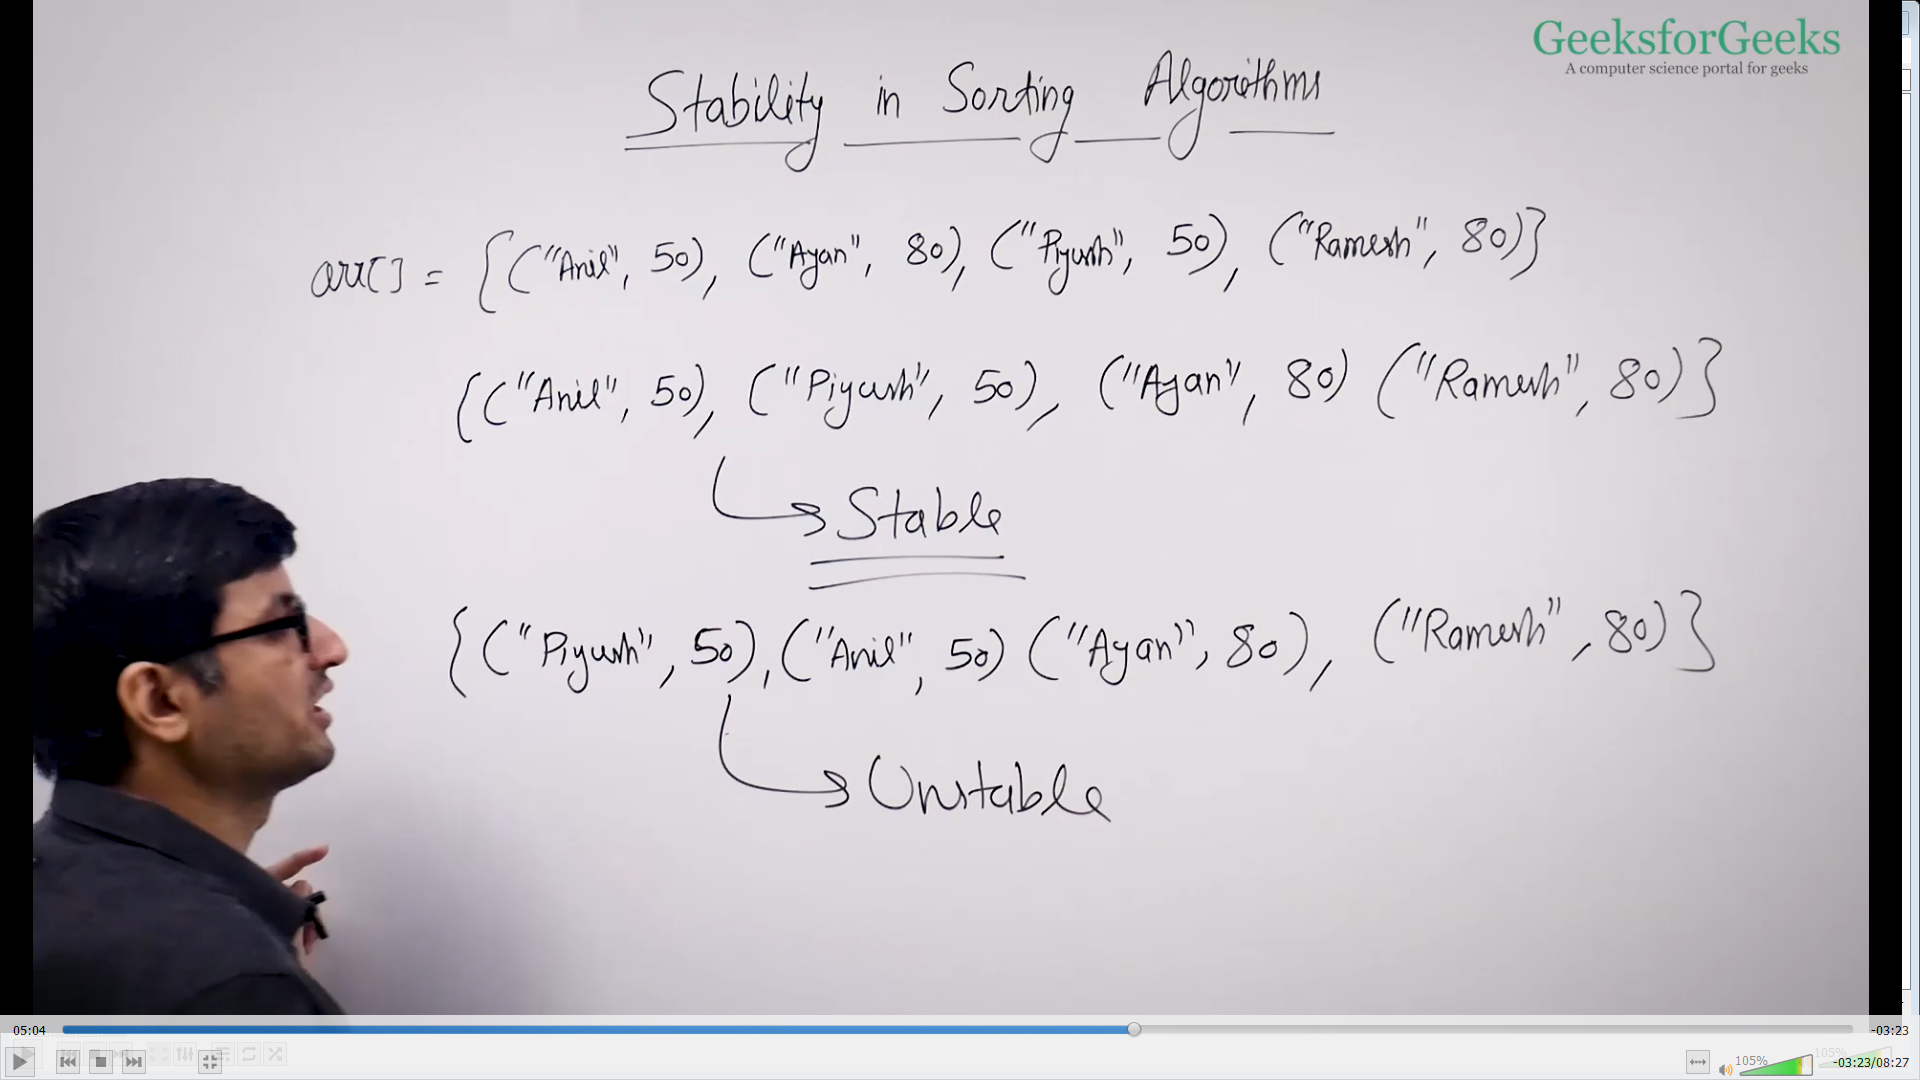 GeeksforGeeks
A computer science portal for geeks
Stability in Sorting Algorithms
arr[] = {("Anil", 50), ("Ayan", 80), ("Piyush", 50), ("Ramesh", 80)}
{("Anil", 50), ("Piyush", 50), ("Ayan", 80) ("Ramesh", 80)}
Stable
{("Piyush", 50), ("Anil", 50) ("Ayan", 80), ("Ramesh", 80)}
Unstable
05:04 -03:23
105% -03:23/08:27